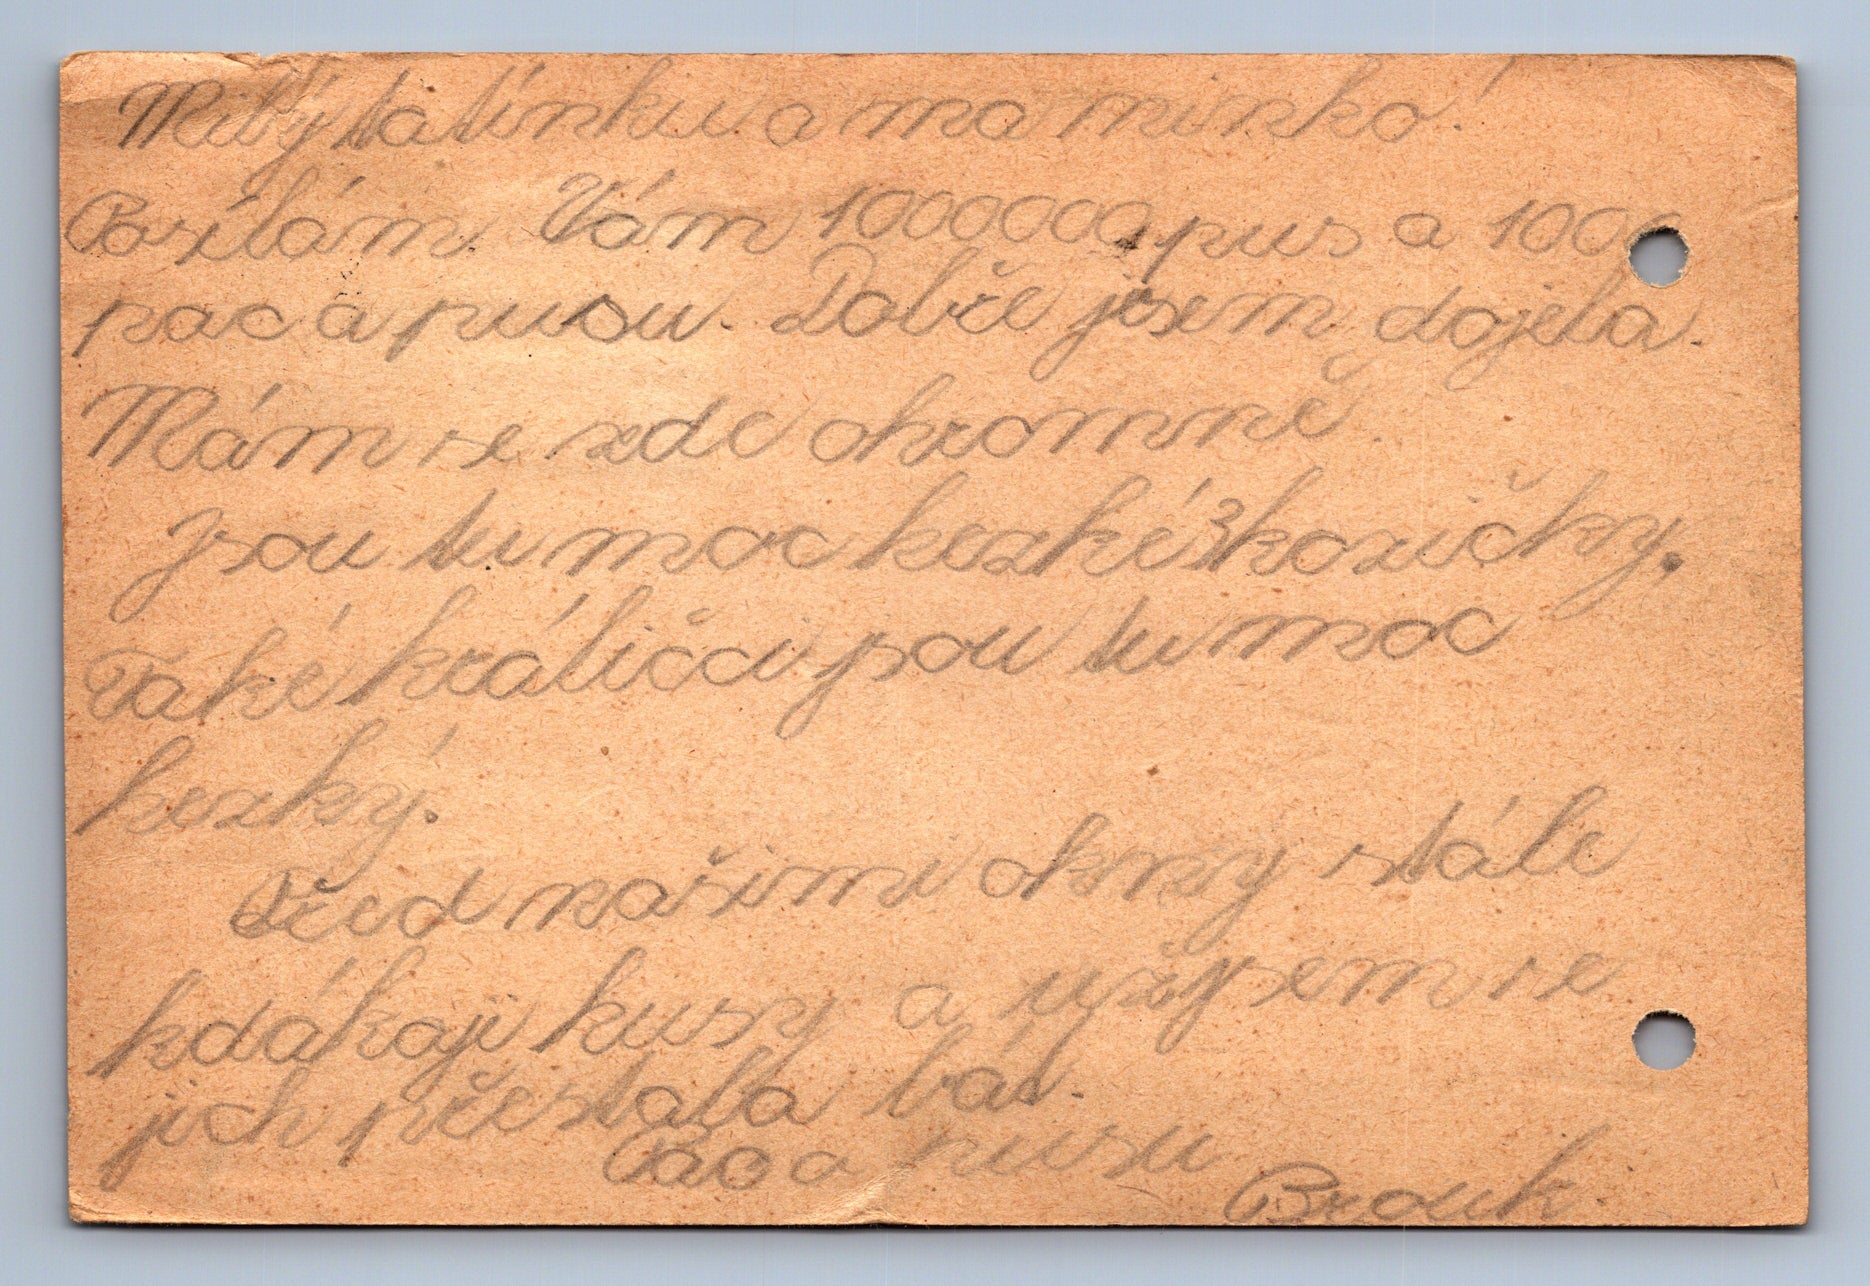 Milý tatínku a maminko!
Posílám Vám 1000000 pus a 1000
pac a pusu. Dobře jsem dojela.
Mám se zde ohromně
jsou tu moc hezké 3 kozičky.
Také králíčci jsou tu moc
hezký.
Před našimi okny stále
kdákají kusy a už jsem se
jich přestala bát.
Pac a pusu
Brouk.